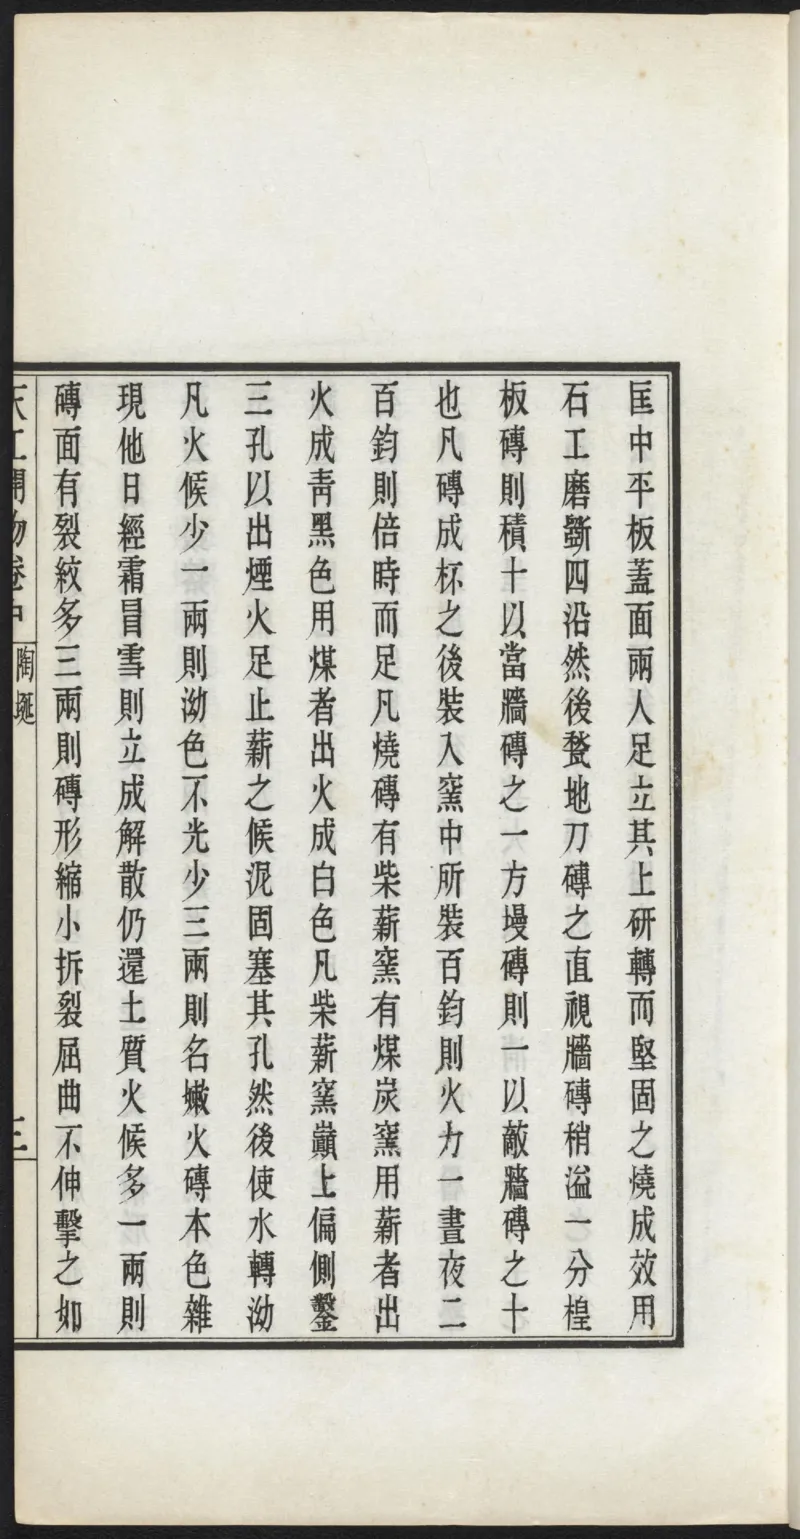 匡中平板蓋面兩人足立其上研轉而堅固之燒成效用
石工磨斵四沿然後甃地刀磚之直視牆磚稍溢一分楻
板磚則積十以當牆磚之一方墁磚則一以敵牆磚之十
也凡磚成杯之後裝入窯中所裝百鈞則火力一晝夜二
百鈞則倍時而足凡燒磚有柴薪窯有煤炭窯用薪者出
火成青黑色用煤者出火成白色凡柴薪窯巔上偏側鑿
三孔以出煙火足止薪之候泥固塞其孔然後使水轉泑
凡火候少一兩則泑色不光少三兩則名嫩火磚本色雜
現他日經霜冒雪則立成解散仍還土質火候多一兩則
磚面有裂紋多三兩則磚形縮小拆裂屈曲不伸擊之如
天工開物卷中
陶埏
三